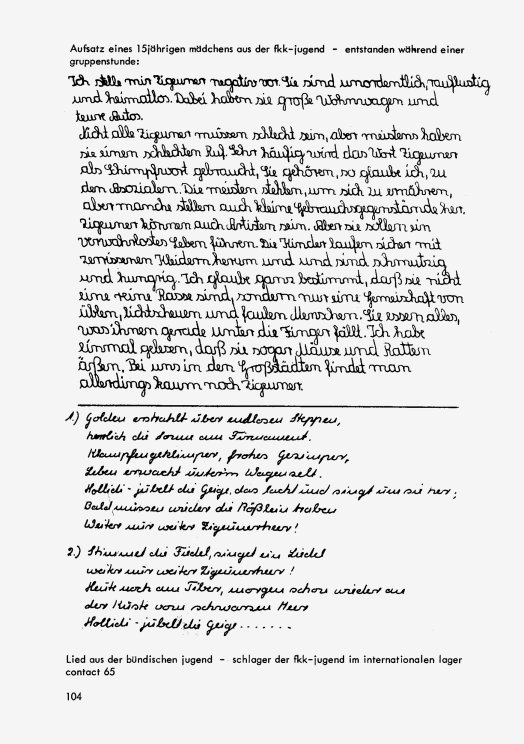 Aufsatz eines 15jährigen mädchens aus der fkk-jugend - entstanden während einer
gruppenstunde:
Ich stelle mir Zigeuner negativ vor. Sie sind unordentlich, rauflustig
und heimatlos. Dabei haben sie große Wohnwagen und
teure Autos.
Nicht alle Zigeuner müssen schlecht sein, aber meistens haben
sie einen schlechten Ruf. Sehr häufig wird das Wort Zigeuner
als Schimpfwort gebraucht, Sie gehören, so glaube ich, zu
den Asozialern. Die meisten stehlen, um sich zu ernähren,
aber manche stellen auch kleine Gebrauchsgegenstände her.
Zigeuner können auch Artisten sein. Aber sie sollen ein
verwahrlostes Leben führen. Die Kinder laufen sicher mit
zerrissenen Kleidern herum und und sind schmutzig
und hungrig. Ich glaube ganz bestimmt, daß sie nicht
eine reine Rasse sind, sondern nur eine Gemeischaft von
üblen, lichtscheuen und faulen Menschen. Sie essen alles,
was ihnen gerade unter die Finger fällt. Ich habe
einmal gelesen, daß sie sogar Mäuse und Ratten
äßen. Bei uns in den Großstädten findet man
allerdings kaum noch Zigeuner.
1.) Golden erstrahlt über endlosen Steppen,
herrlich die Sonne am Firmament.
Klampfengeklimper, frohes Gezimper,
Leben erwacht unterm Wagenzelt.
Hollidi - jubelt die Geige, das lacht und singt um sie her;
Bald müssen wieder die Rößlein traben
Weiter nur weiter Zigeunerheer!
2.) Stimmet die Fiedel, singet ein Liedel
weiter nur weiter Zigeunerheer!
Heute noch am Tiber, morgen schon wieder an
der Küste vom schwarzen Meer
Hollidi - jubelt die Geige .......
Lied aus der bündischen jugend - schlager der fkk-jugend im internationalen lager
contact 65
104